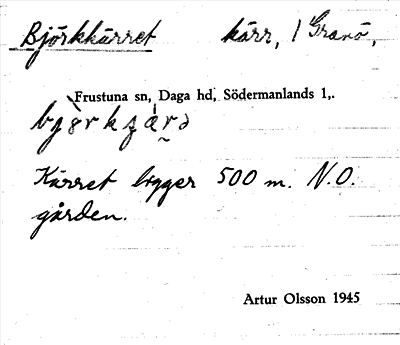 Björkkärret kärr, 1 Granö,
Frustuna sn, Daga hd, Södermanlands l,.
Kärret ligger 500 m. N.O.
gården.
Artur Olsson 1945